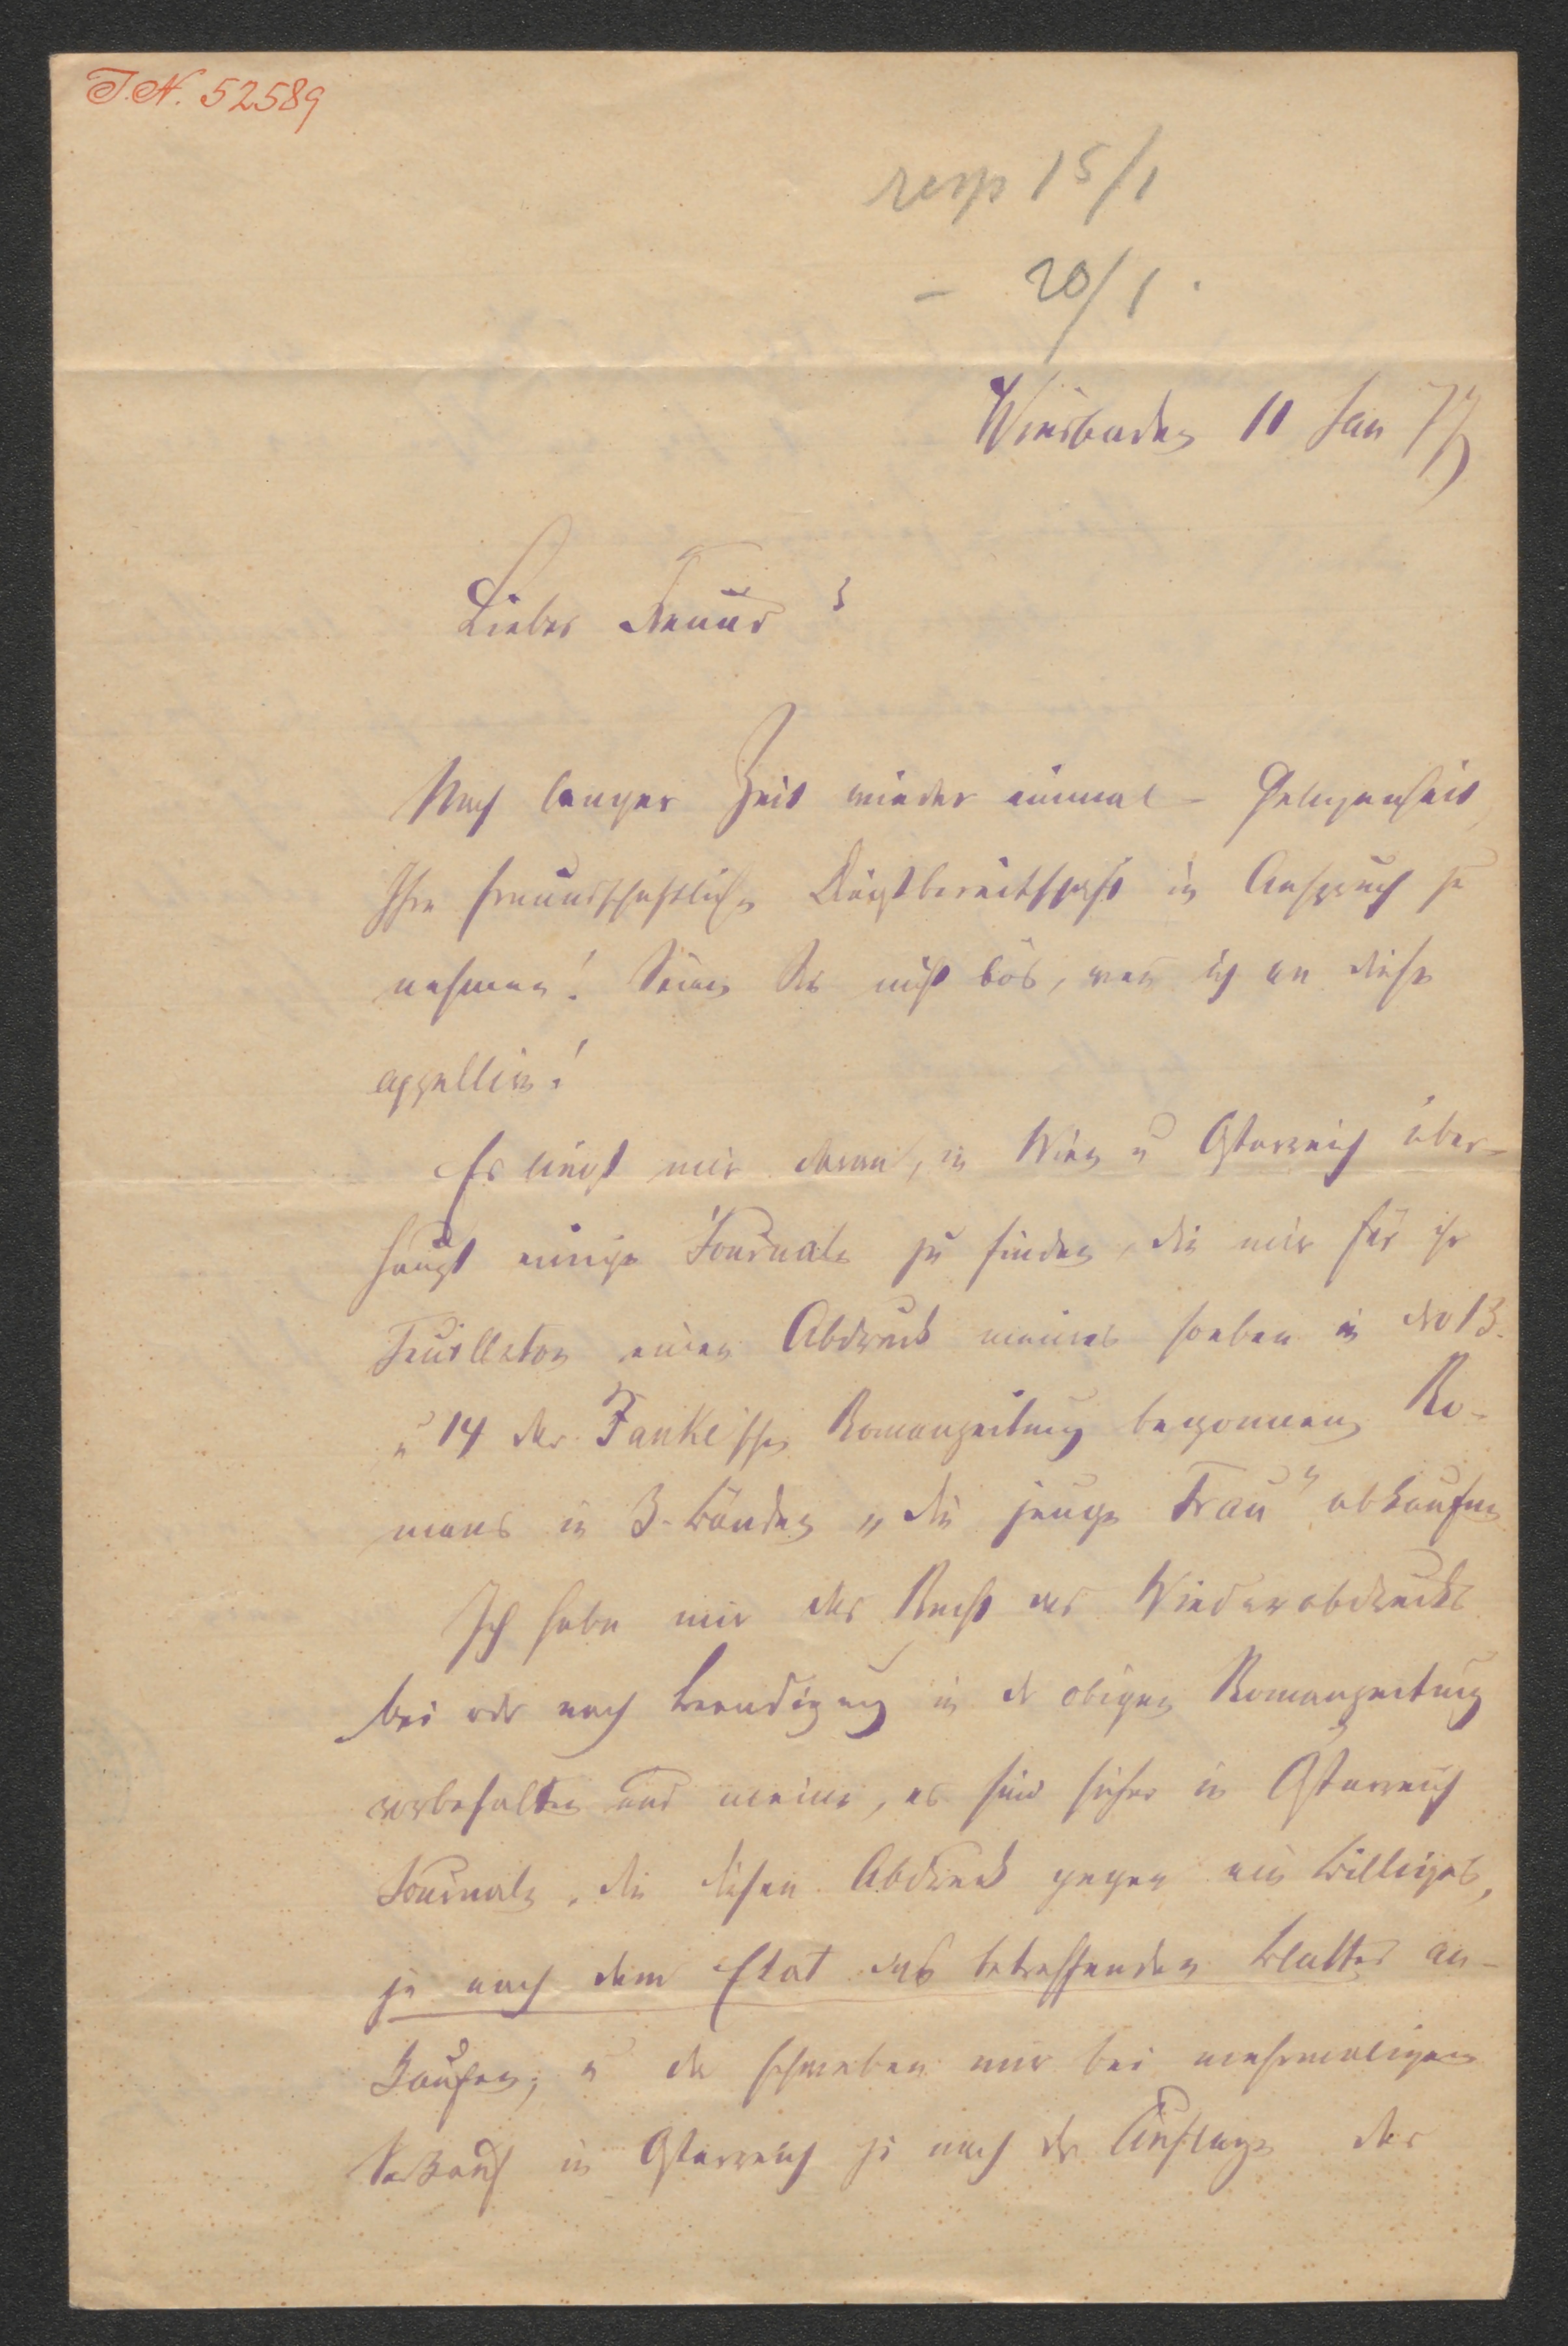 I.N. 52589
resp 15/1
– 20/1.
Wiesbaden 11 Jan 77
Lieber Freund!
Nach langer Zeit wieder einmal – Gelegenheit,
Ihre freundschaftliche Dienstbereitschaft in Anspruch zu
nehmen! Seien Sie nicht bös, wenn ich an diese
appellire!
Es liegt mir daran, in Wien u Österreich über-
haupt einige Journale zu finden, die mir für ihr
Feuilleton einen Abdruck meines soeben in No 13.
u 14 der Janke'schen Romanzeitung begonnenen Ro-
mans in 3. Bänden „die junge Frau" abkaufen
Ich habe mir das Recht des Wiederabdrucks
bei oder nach Beendigung in der obigen Romanzeitung
vorbehalten und meine, es sind sicher in Österreich
Journale, die diesen Abdruck gegen ein Billiges,
je nach dem Etat des betreffenden Blattes an-
kaufen; u da schweben mir bei mehrmaligem
Verkauf in Österreich je nach der Auflage des